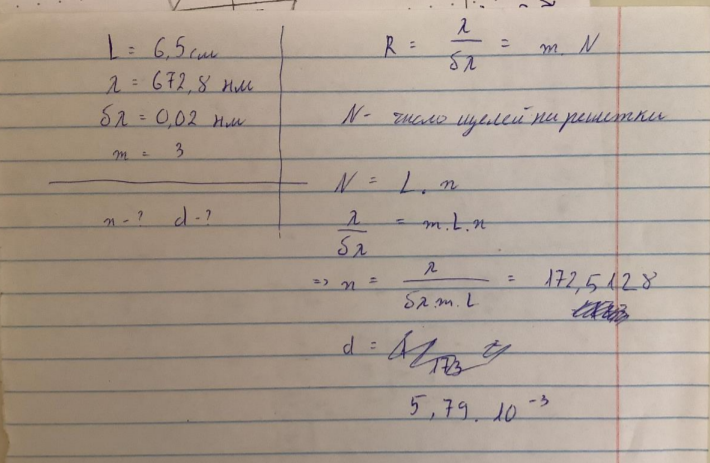 L = 6,5 см
λ = 672,8 нм
δλ = 0,02 нм
m = 3
n - ? d - ?
R = λ/δλ = m. N
N - число щелей на решетки
N = L. n
λ/δλ = m.L.n
=> n = λ/δλ m.L = 172,5128
d =
173
5,79. 10⁻³